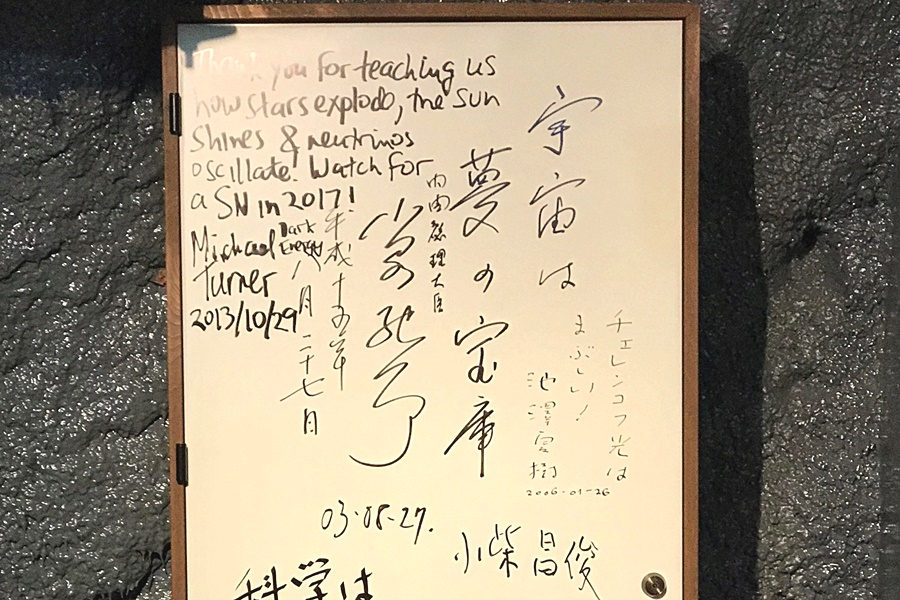 Thank you for teaching us
how stars explode, the sun
shines & neutrinos
oscillate. Watch for
a SN in 2017!
Michael Dark Energy
Turner
2013/10/29
宇宙は
夢の宝庫
内閣総理大臣
平成十五年
八月二十七日
チェレンコフ光は
まぶしい!
池澤夏樹
2006-01-26
03-08-27.
小柴昌俊
科学は